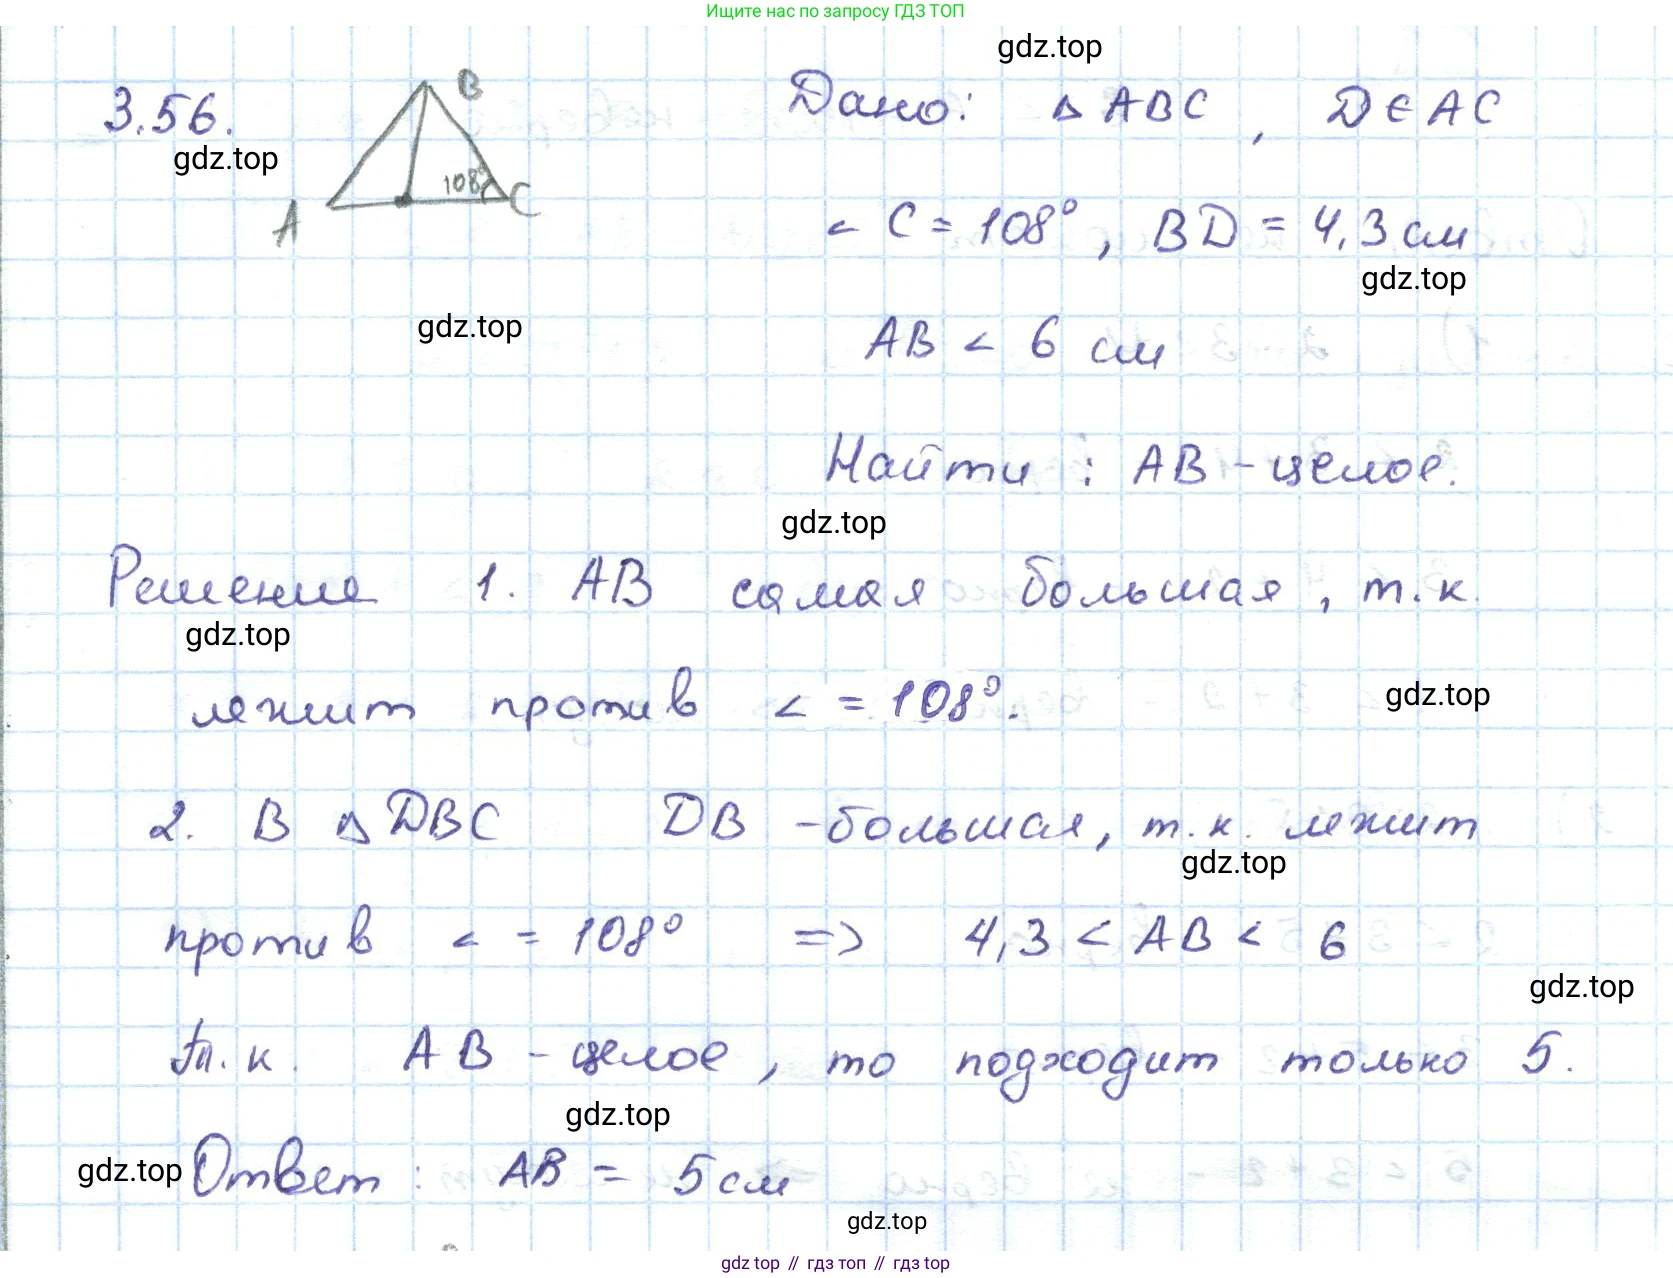 Ищите нас по запросу ГДЗ ТОП
gdz.top
3.56.
gdz.top
B
A
108°
C
Дано: △ ABC, D ∈ AC
∠ C = 108°, BD = 4,3 см
gdz.top
gdz.top
AB < 6 см
Найти: AB - целое.
gdz.top
Решение 1. AB самая большая, т.к.
gdz.top
лежит против ∠ = 108°.
gdz.top
2. В △ DBC DB - большая, т.к. лежит
gdz.top
против ∠ = 108° => 4,3 < AB < 6
gdz.top
Т.к. AB - целое, то подходит только 5.
gdz.top
gdz.top
Ответ: AB = 5 см
gdz.top
gdz top // гдз топ // гдз top